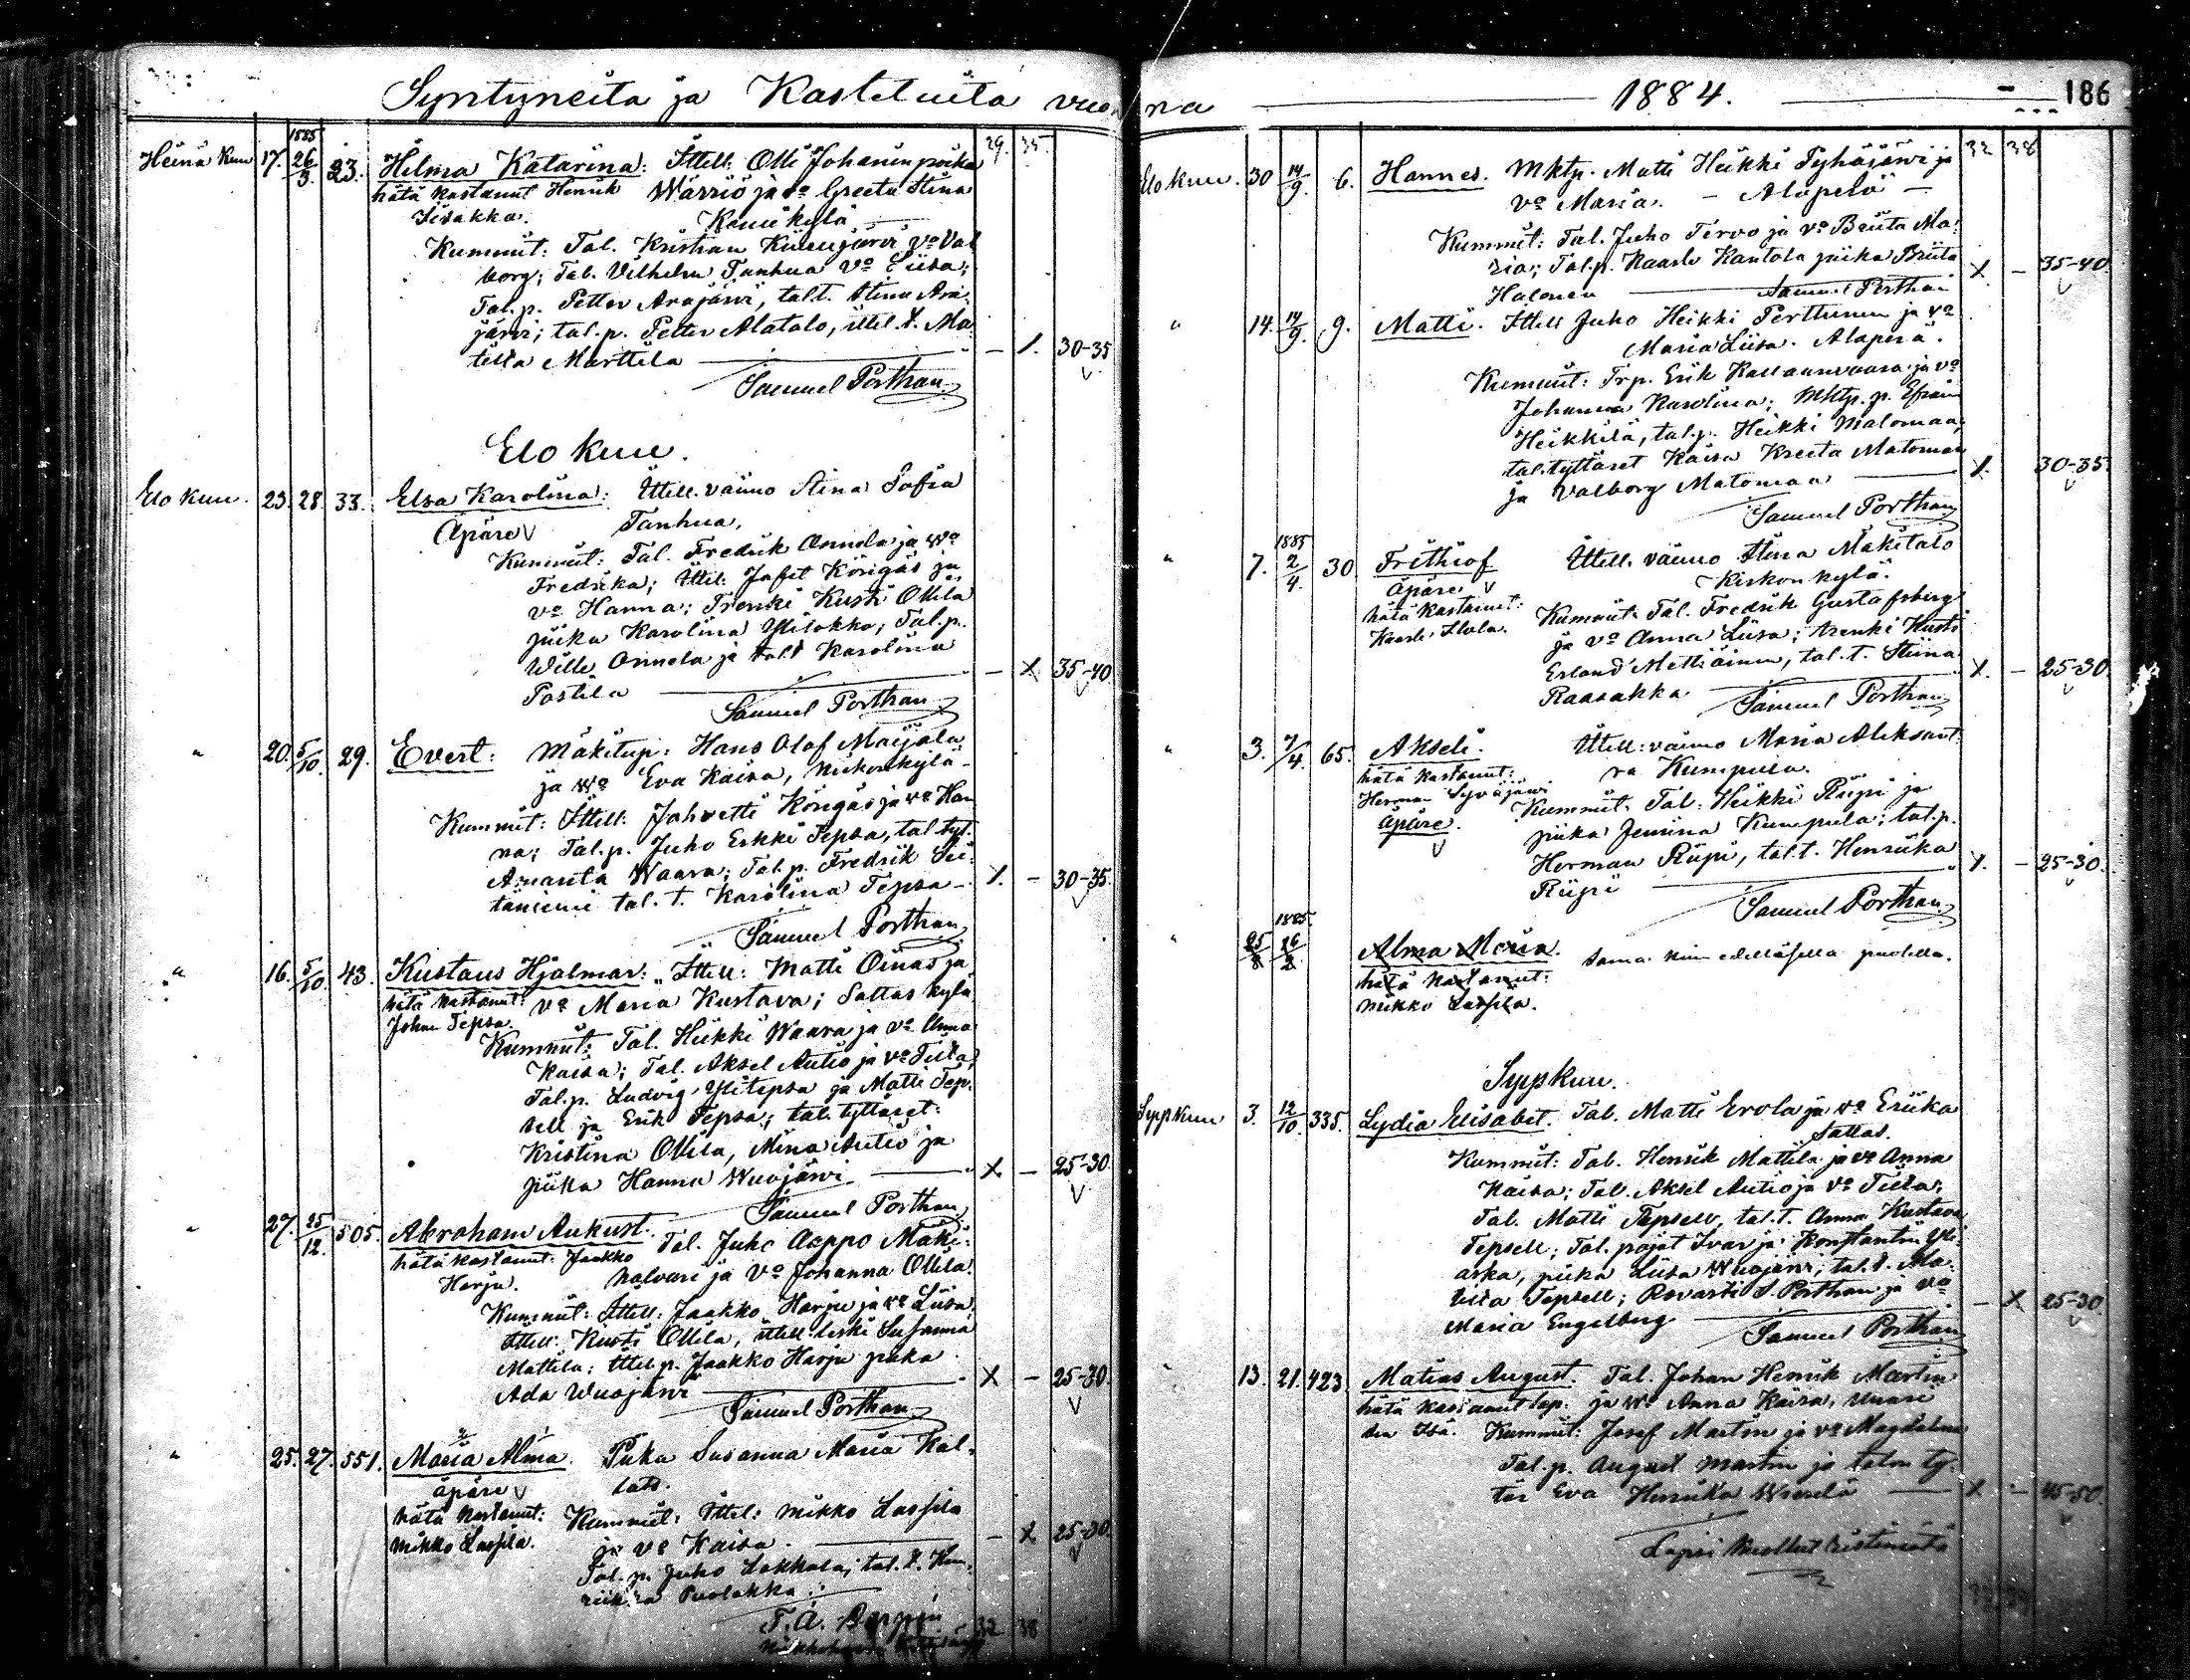 Syntyneitä ja Kastetuita vuonna 1884.
186
29. 35.
Heinä kuu 17. 1885 26/3. 23. Hilma Katarina: Ittell: Olli Johanin poika
hätä kastanut Henrik Wärriö ja vo Greeta Stina
Kummit: Tal. Kristian Kuusijärvi vo Val
borg; Tal. Vilhelm Tanhua vo Liisa;
Tal. p. Petter Arajärvi, tal.t. Stina Ara-
järvi; tal. p. Petter Alatalo, ittel. t. Ma-
tilta Marttila — 1. 30-35
Samuel Porthan
Elo kuu.
Elo kuu. 23. 28. 33. Elsa Karolina: Ittell. vaimo Stina Sofia
Äpärä Tanhua.
Kummit: Tal. Fredrik Onnela ja Wo
Fredrika; Ittel: Jafet Köngäs ja
vo Hanna; Trenki Kusti Ollila
piika Karolina Ylilokko; Tal. p.
Wille Onnela ja tal.t Karolina
Postila — X 35-40
Samuel Porthan
" 20. 5/10. 29. Evert: Mäkitup: Hans Olof Maijala
ja Wo Eva Kaisa, kylä
Kummit: Ittell: Jahvetti Köngäs ja vo Han
na; Tal. p. Juho Erkki Tepsa, tal tyt.
Amanta Waara; Tal. p. Fredrik Sii-
täniemi tal. t. Karolina Tepsa X. — 30-35.
Samuel Porthan
" 16. 5/10. 43. Kustaus Hjalmar: Ittell: Matti Oinas ja
hätä kastanut: vo Maria Kustava; Sattas kylä
Johan Tepsa.
Kummit: Tal. Heikki Waara ja vo Anna
Kaisa; Tal. Aksel Autio ja vo Tiila;
Tal. p. Ludvig Ylitepsa ja Matti Tep-
sell ja Erik Tepsa; tal. tyttäret:
Kristina Ollila, Mina Autio ja
piika Hanna Wuojärvi X — 25-30
Samuel Porthan
" 27. 25/12. 505. Abraham Aukust. Tal. Juho Aappo Mäki-
hätä kastanut: Jaakko halvari ja Vo Johanna Ollila.
Harju.
Kummit: Ittell: Jaakko Harju ja vo Liisa,
Ittell: Kusti Ollila, ittell: leski Susanna
Mattila; Ittel. p. Jaakko Harju piika
Ada Wuojärvi X — 25-30.
Samuel Porthan
" 25. 27. 551. Maria Alma. Piika Susanna Maria Kal-
äpärä
hätä kastanut: Kummit: Ittel: Mikko Lassila
Mikko Lassila. ja vo Kaisa. — X 25-30.
Tal. p. Juho Lakkala; tal. t. Hen-
riikka Puolakka
32 38
32 38
Elo kuu. 30 14/9. 6. Hannes. Mktp. Matti Heikki Pyhäjärvi ja
vo Maria. — Alaperä —
Kummit: Tal. Juho Tervo ja vo Briita Ma-
ria; Tal. p. Kaarlo Kantola piika Briita
Halonen X — 35-40
Samuel Porthan
" 14. 14/9. 9. Matti. Ittell Juho Heikki Perttunen ja vo
Maria Liisa. Alaperä.
Kummit: Trp. Erik ja vo
Johanna Karolina; Mktp. p. Efraim
Heikkilä, tal. p. Heikki Matomaa;
tal. tyttäret Kaisa Kreeta Matomaa
ja Valborg Matomaa X. 30-35
Samuel Porthan
" 7. 1885 2/4. 30 Frithiof Ittell. vaimo Stina Mäkitalo
Äpärä Kiskon kylä.
hätä kastanut: Kummit: Tal. Fredrik Gustafsberg
ja vo Anna Liisa; trenki Kusti
Erland Mettiäinen, tal. t. Stiina
Raasakka X. — 25-30
Samuel Porthan
" 3. 7/4. 65. Akseli. Ittell: vaimo Maria Aleksant-
hätä kastanut: ra Kumpula.
Herman Syväjärvi
äpärä.
Kummit: Tal: Heikki Riipi ja
piika Jemina Kumpula; tal. p.
Herman Riipi, tal. t. Henriika
Riipi X. — 25-30.
Samuel Porthan
" 25/8 1885 26/2 Alma Maria. Sama kuin edellisellä puolella.
hätä kastanut:
Mikko Lassila.
Syys kuu.
Syys kuu 3. 12/10. 335. Lydia Elisabet. Tal. Matti Erola ja vo Eriika
Sattas.
Kummit: Tal. Henrik Mattila ja vo Anna
Kaisa; Tal. Aksel Autio ja vo Tiila;
Tal. Matti Tepsell, tal. t. Anna Kustava
Tepsell; Tal. pojat Ivar ja Konstantin Yli-
aska, piika Liisa Wuojärvi; tal. t. Ma-
tilta Tepsell; Rovasti S. Porthan ja vo
Maria Engelberg — X. 25-30.
Samuel Porthan
" 13. 21. 423. Matias August. Tal. Johan Henrik Martin
hätä kastanut lap- ja Wo Anna Kaisa, Unari
sen Isä. Kummit: Josef Martin ja vo Magdalena
Tal. p. August Martin ja talon ty-
tär Eva Henriika X — 45-50.
Lapsi kuollut ristimätä